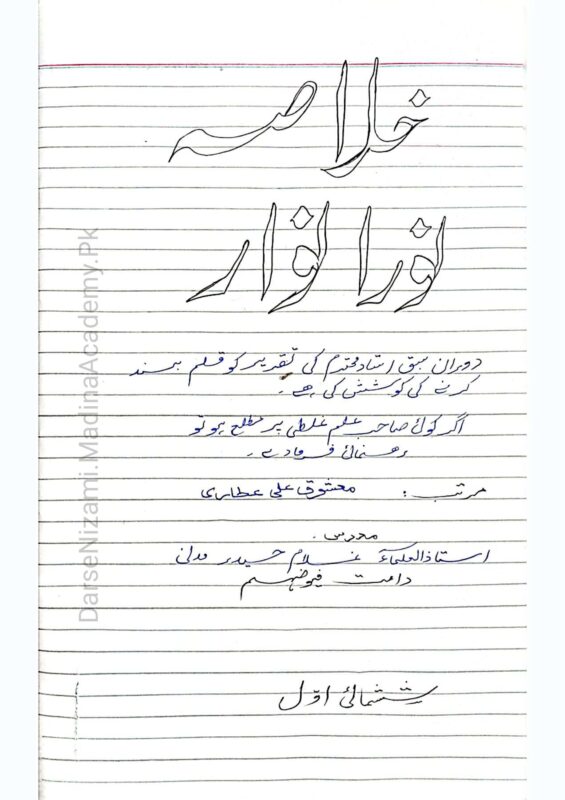 خلاصہ
نورالانوار
دوران سبق استاد محترم کی تقریر کو قلم بند
کرنے کی کوشش کی ہے۔
اگر کوئی صاحب علم غلطی پر مطلع ہو تو
رہنمائی فرما دے۔
مرتب: معشوق علی عطاری
مدرس:
استاذالعلماء غلام حیدر مدنی
دامت فیوضہم
ششمائی اوّل
DarseNizami.MadinaAcademy.Pk